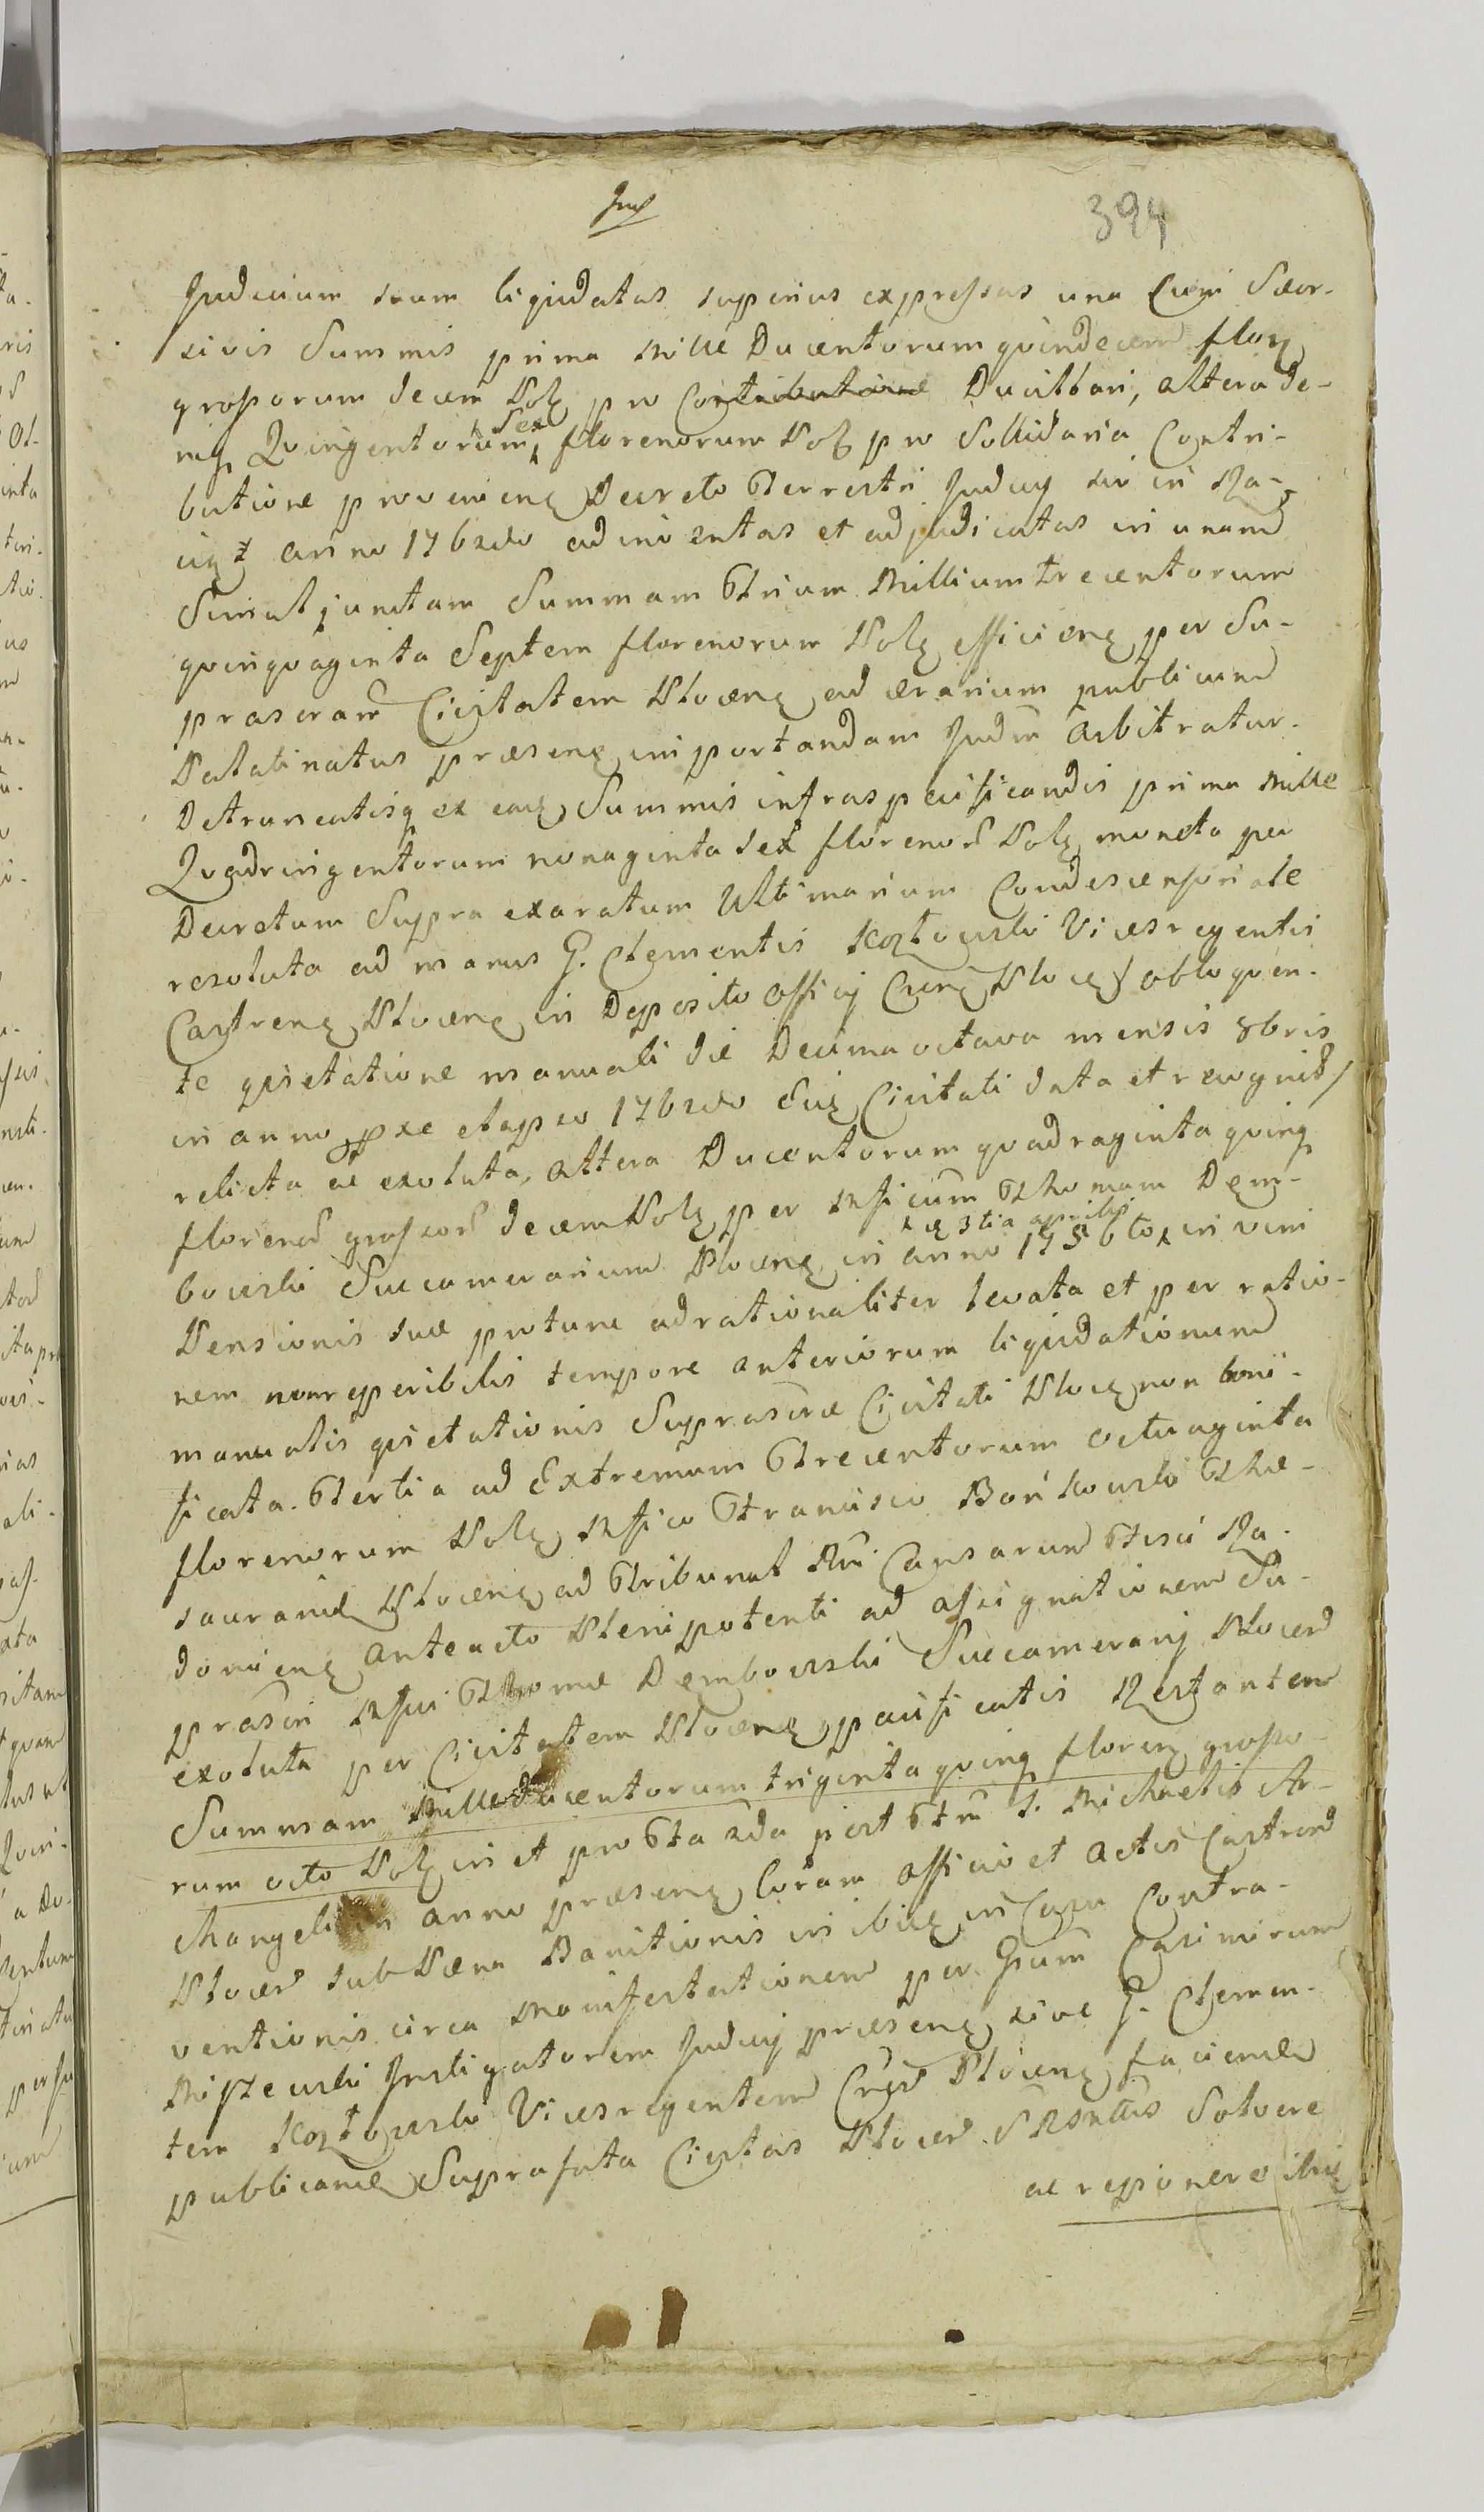 394
Judicium suum liquidatas superius expressas una Cum Seor-
sivis Summis prima Mille Ducentorum quindecem flor
grossorum decem Pol pro Contributione Ducillari, altera de-
niq Quingentorum Sex florenorum Pol pro Sollidaria Contri-
butione proveneng Decreto Terrestri Judicij sui in Ra-
ciąż anno 1762do adinventas et adjudicatas in unam
Simul junctam Summam Trium Millium trecentorum
quinquaginta Septem florenorum Pol efficieng per Su-
prascram Civitatem Ploceng ad ærarium publicum
Palatinatus præseng importandam Judm arbitratur.
Detruncatisq ex eaq Summis infraspecificandis prima Mille
Quadringentorum nonaginta sex florenor Polq moneta per
Decretum Supra exaratum Ultimarium Condescensoriale
resoluta ad manus G. Clementis Koztowski Vicesregentis
Castreng Ploceng in Deposito Officij Creng Ploceg obloquen-
te quietatione manuali die Decima octava mensis 8bris
in anno pxe elapso 1762do Eidq Civitati data et recognit/
relicta ac exoluta, altera Ducentorum quadraginta quinq
florenor grossor decem Polq per Mficum Thomam Dem-
bowski Succamerarium Ploceng in anno 1756to die 3tia aprilis in vim
Pensionis suæ protunc adrationaliter levata et per ratio-
nem nonreperibilis tempore anteriorum liquidationum
manualis quietationis Suprascræ Civitati Plocg non boni-
ficata. Tertia ad Extremum Trecentorum octuaginta
florenorum Polq Mfico Francisco Bońkowski The-
saurario Ploceng ad Tribunal Rni Causarum Fisci Ra-
domieng anteacto Plenipotenti ad assignationem Su-
prascri Mfici Thomæ Dembowski Succamerarij Plocen
exoluta per Civitatem Ploceng, pacificatis Restantem
Summam Mille ducentorum triginta quinq floreng grosso-
rum octo Polq in et pro Fta 2da post Ftm S. Michaelis Ar-
changeli in anno præseng Coram Officio et Actis Castren
Plocen sub Pæna Banitionis in ibidq in Casu Contra-
ventionis circa Manifestationem per Gsum Casimirum
Miszewski Instigatorem Judicij præseng sive G. Clemen-
tem Koztowski Vicesregentem Crgs Ploceng faciende
publicande Suprafata Civitas Plocen Solvere
ac reponere ibid